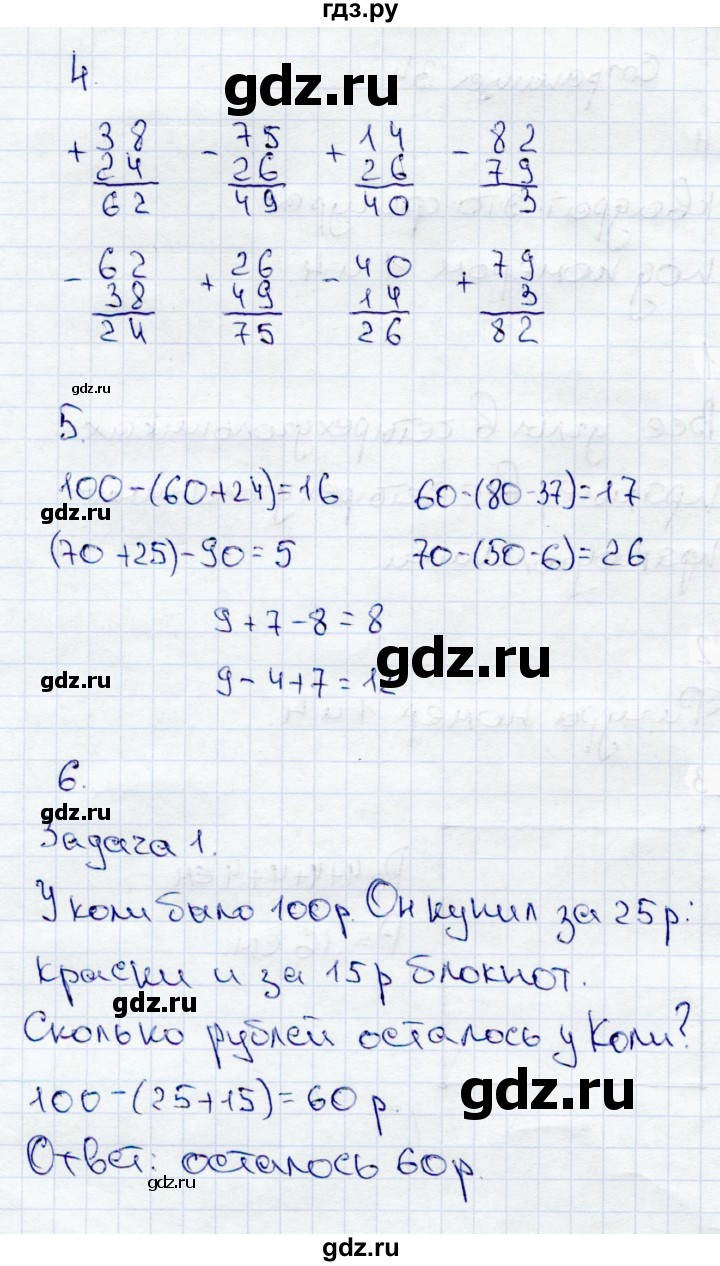 гдз.ру
4.
gdz.ru
+ 38 - 75 + 14 - 82
24 26 26 79
62 49 40 3
- 62 + 26 - 40 + 79
38 49 14 3
24 75 26 82
gdz.ru
5.
100-(60+24)=16 60-(80-37)=17
gdz.ru
(70+25)-90=5 70-(50-6)=26
9+7-8=8
gdz.ru
9-4+7=12
gdz.ru
6.
gdz.ru
Задача 1.
У коли было 100р. Он купил за 25р:
краски и за 15р блокнот.
gdz.ru
Сколько рублей осталось у Коли?
100-(25+15)=60 р.
gdz.ru
Ответ: осталось 60р.
gdz.ru
gdz.ru